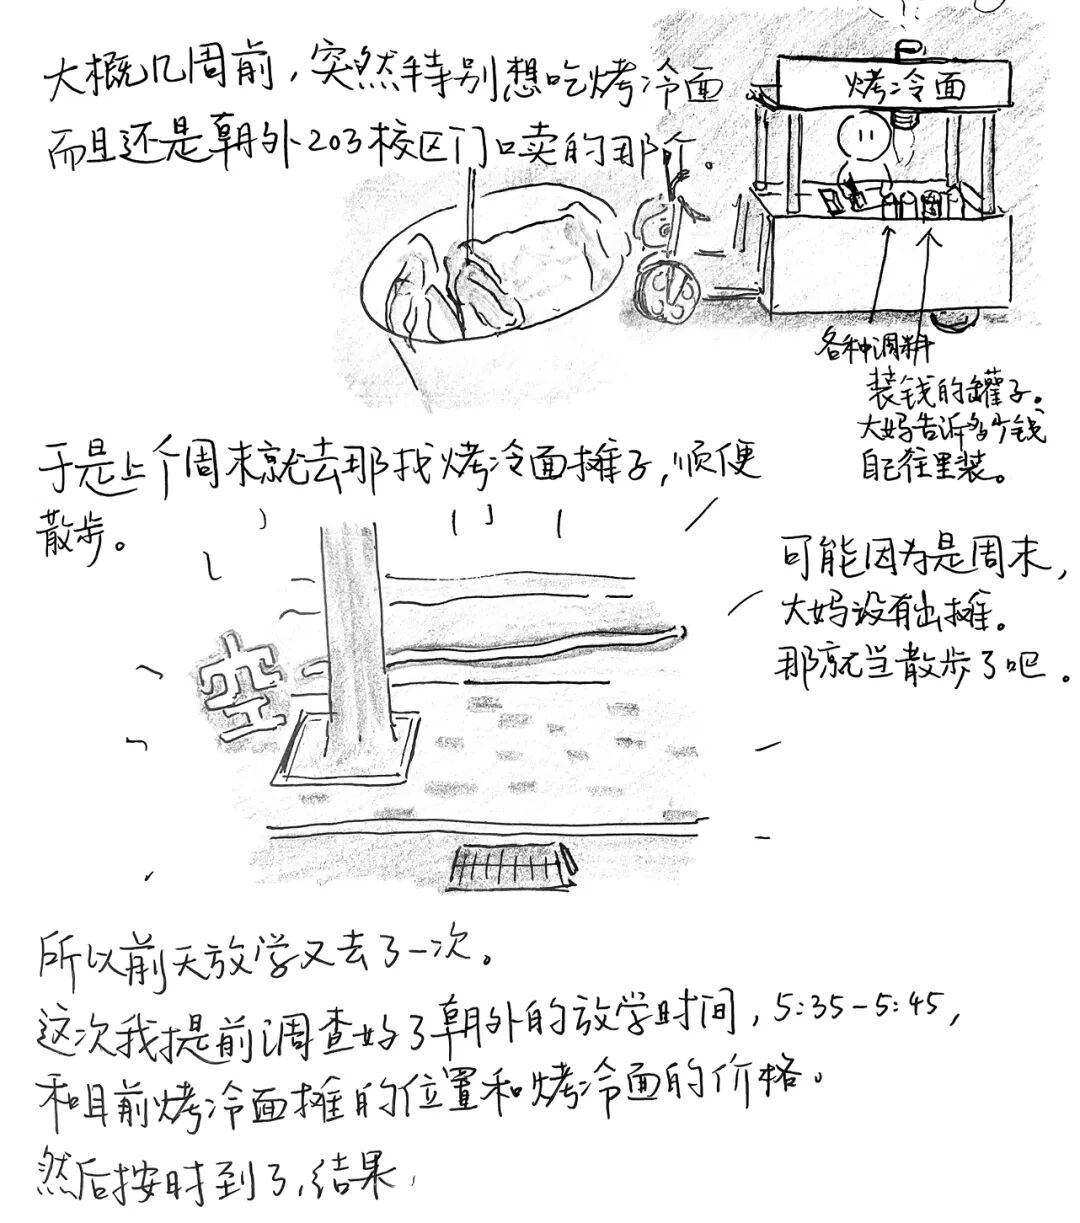 大概几周前，突然特别想吃烤冷面
而且还是朝外203校区门口卖的那个.
烤冷面
各种调料
装钱的罐子。
大妈告诉多少钱
自己往里装。
于是上个周末就去那找烤冷面摊子，顺便
散步。
空
可能因为是周末，
大妈没有出摊。
那就当散步了吧.
所以前天放学又去了一次。
这次我提前调查好了朝外的放学时间，5:35-5:45，
和目前烤冷面摊的位置和烤冷面的价格。
然后按时到了,结果，